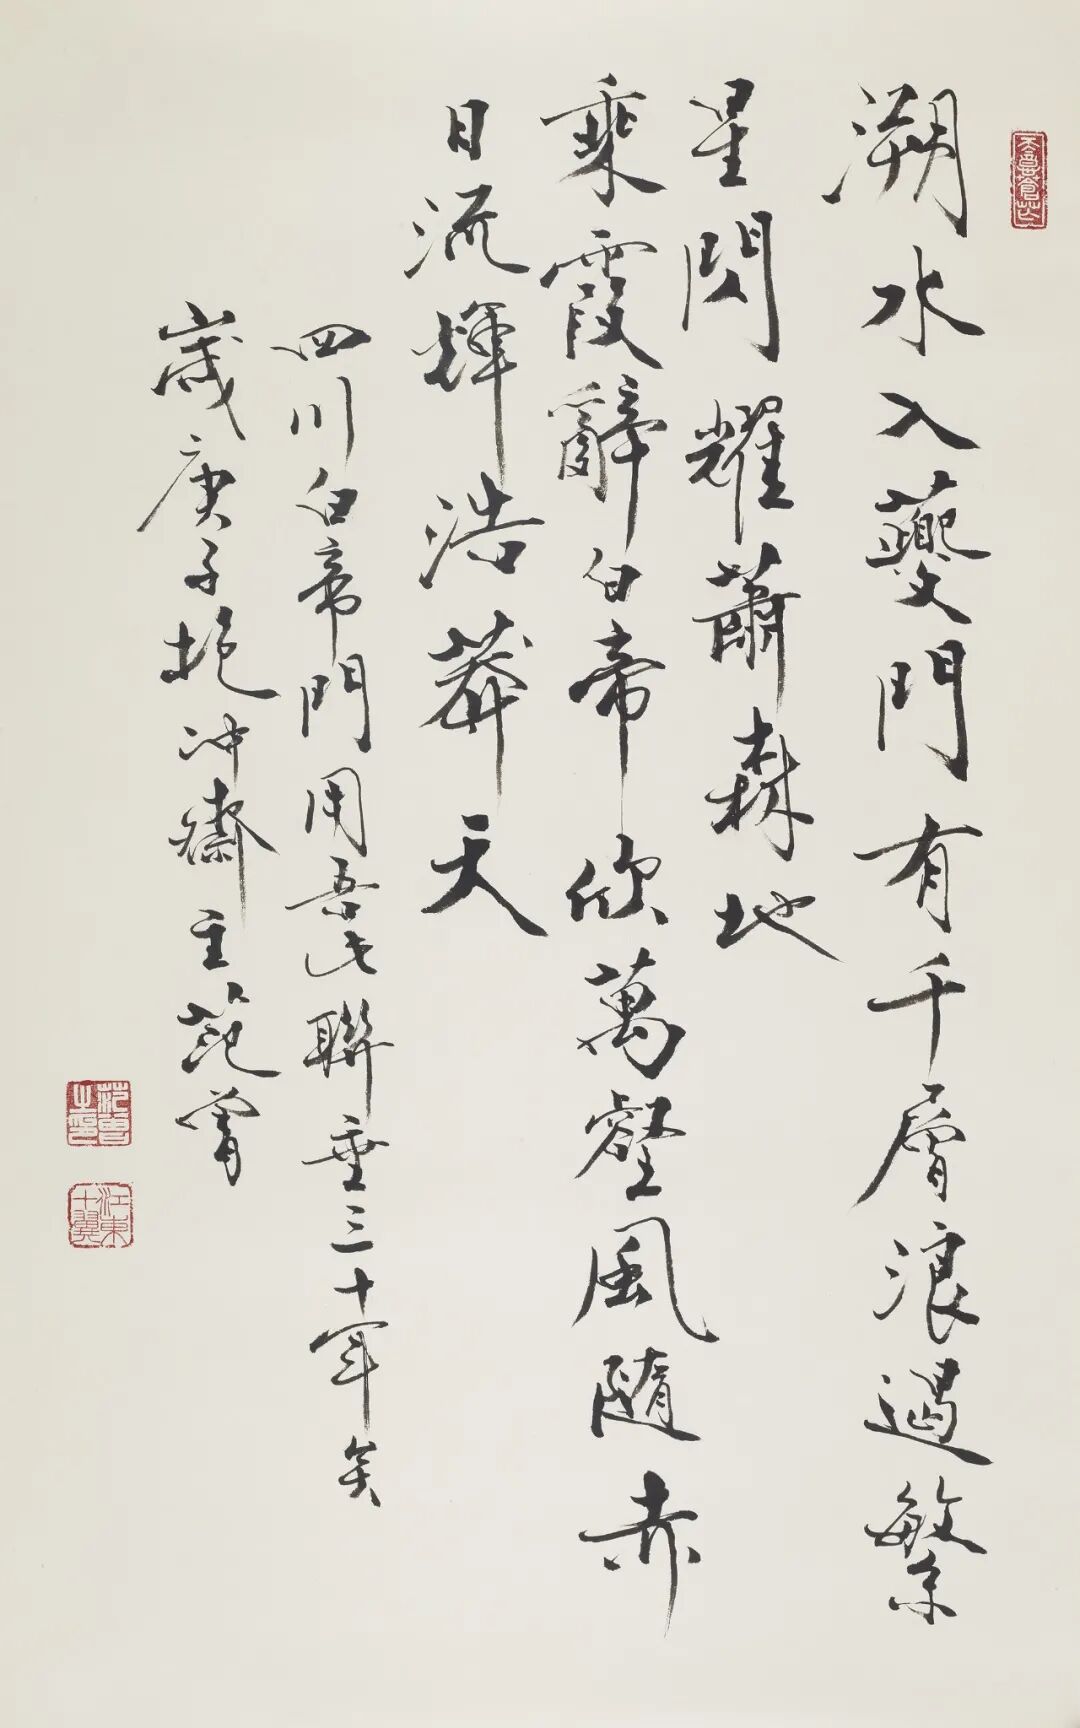 溯水入夔門有千層浪遏繁
星閃耀蕭森地
乘霞辭白帝欣萬壑風隨赤
日流輝浩莽天
四川白帝門用吾此聯垂三十年矣
歲庚子抱冲齋主范曾
范曾之印
江東十翼